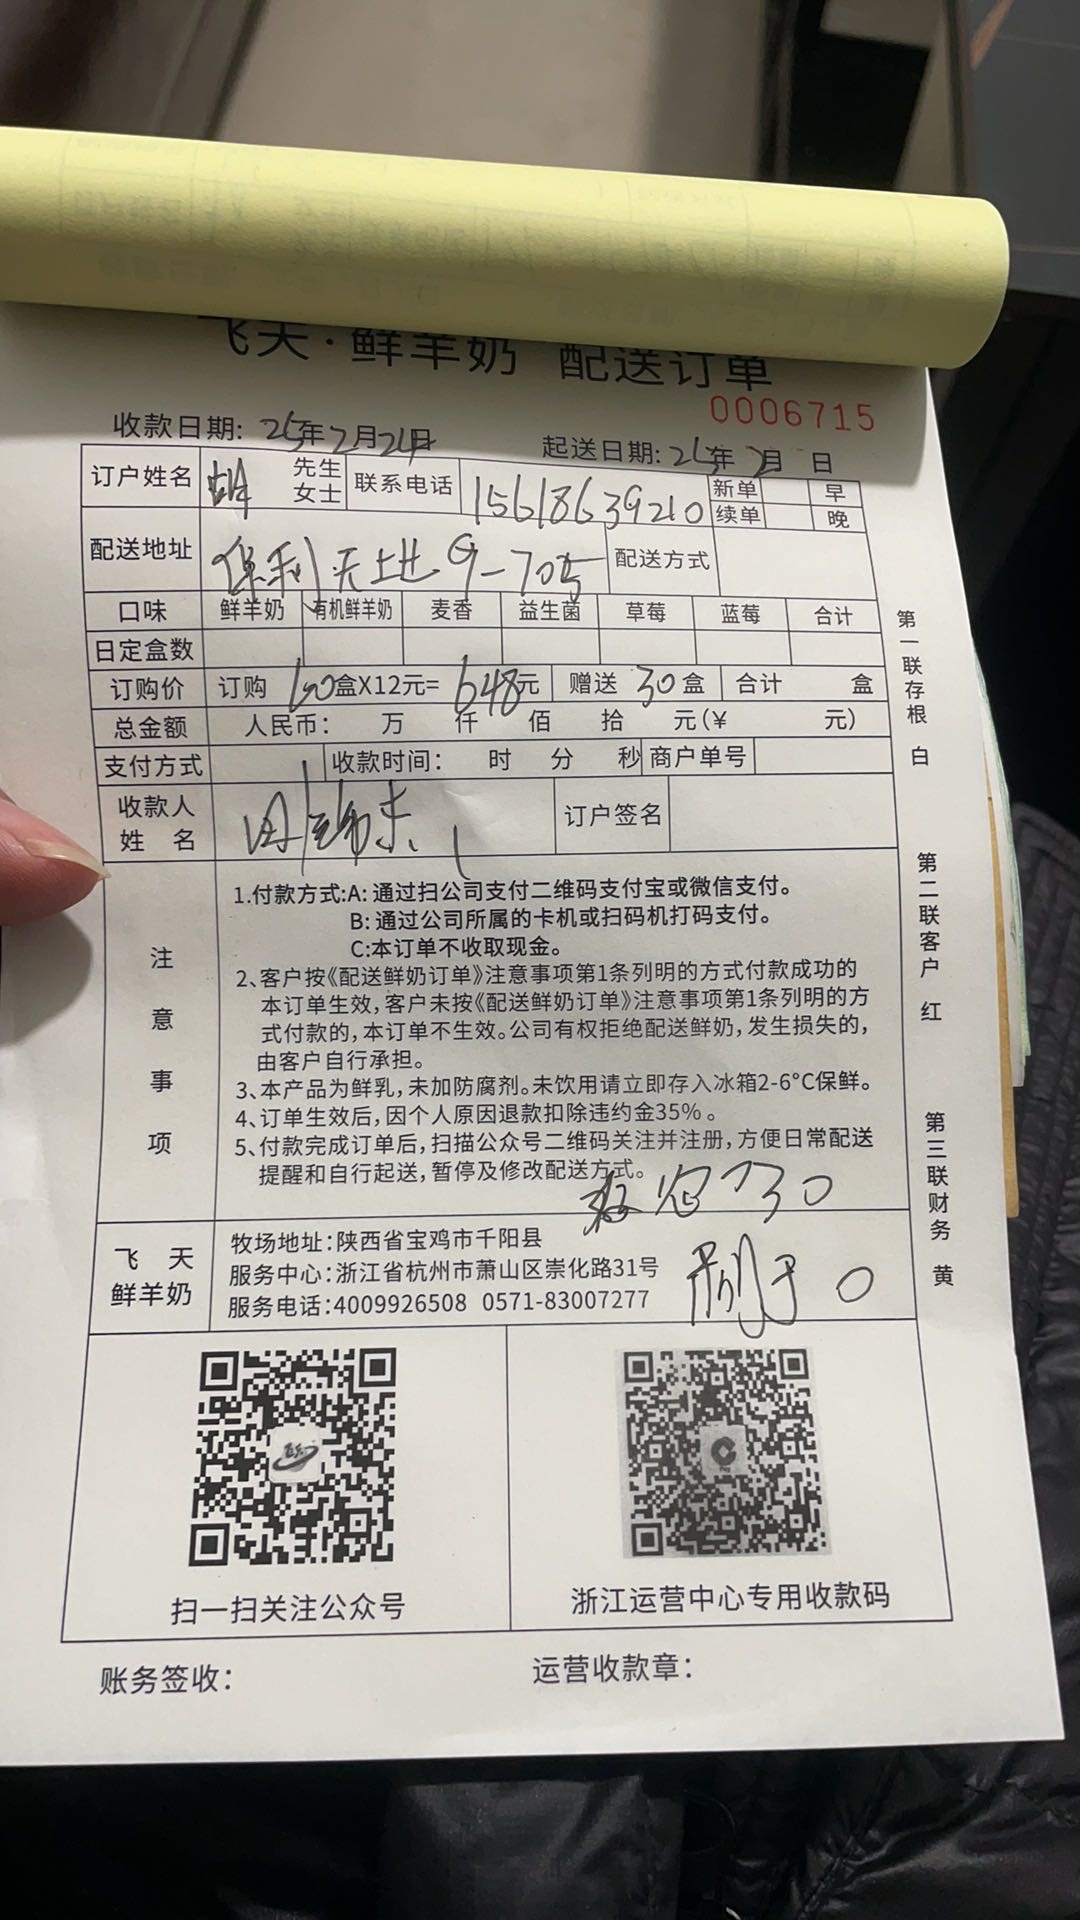 飞天·鲜羊奶 配送订单
0006715
收款日期: 25年2月24日 起送日期: 25年2月 日
订户姓名 先生 女士 联系电话 15618639210 新单 早
续单 晚
配送地址 保利天上进9-705 配送方式
口味 鲜羊奶 有机鲜羊奶 麦香 益生菌 草莓 蓝莓 合计
日定盒数
订购价 订购 60盒X12元=648元 赠送 30盒 合计 盒
总金额 人民币: 万 仟 佰 拾 元(¥ 元)
支付方式 收款时间: 时 分 秒 商户单号
收款人姓名 订户签名
注意事项
1.付款方式:A: 通过扫公司支付二维码支付宝或微信支付。
B: 通过公司所属的卡机或扫码机打码支付。
C:本订单不收取现金。
2、客户按《配送鲜奶订单》注意事项第1条列明的方式付款成功的
本订单生效,客户未按《配送鲜奶订单》注意事项第1条列明的方
式付款的,本订单不生效。公司有权拒绝配送鲜奶,发生损失的,
由客户自行承担。
3、本产品为鲜乳,未加防腐剂。未饮用请立即存入冰箱2-6°C保鲜。
4、订单生效后,因个人原因退款扣除违约金35%。
5、付款完成订单后,扫描公众号二维码关注并注册,方便日常配送
提醒和自行起送,暂停及修改配送方式。
30
0
飞天
鲜羊奶
牧场地址:陕西省宝鸡市千阳县
服务中心:浙江省杭州市萧山区崇化路31号
服务电话:4009926508 0571-83007277
扫一扫关注公众号
浙江运营中心专用收款码
账务签收: 运营收款章:
第一联存根 白
第二联客户 红
第三联财务 黄